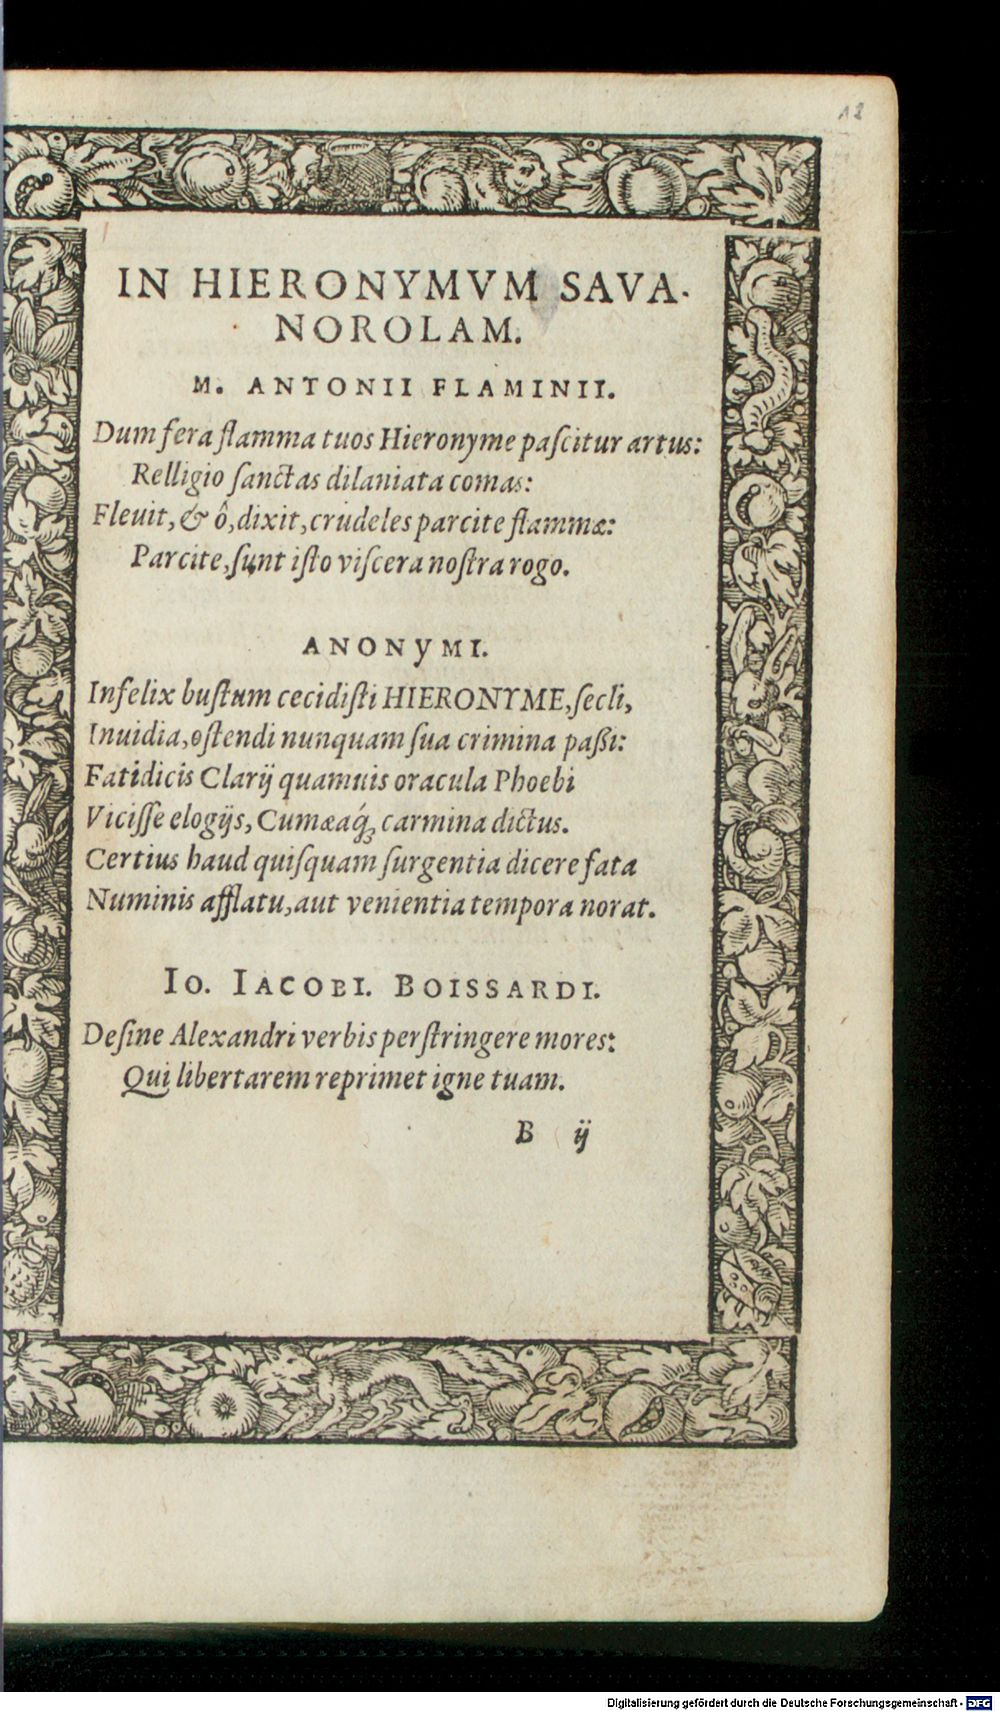 12
IN HIERONYMVM SAVA-
NOROLAM.
M. ANTONII FLAMINII.
Dum fera flamma tuos Hieronyme paſcitur artus:
Relligio ſanctas dilaniata comas:
Fleuit, & ô, dixit, crudeles parcite flammæ:
Parcite, ſunt iſto viſcera noſtra rogo.
ANONYMI.
Infelix buſtum cecidiſti HIERONYME, ſecli,
Inuidia, oſtendi nunquam ſua crimina paßi:
Fatidicis Clarij quamuis oracula Phoebi
Viciſſe elogijs, Cumæaq́ꝫ carmina dictus.
Certius haud quiſquam ſurgentia dicere fata
Numinis afflatu, aut venientia tempora norat.
IO. IACOBI. BOISSARDI.
Deſine Alexandri verbis perſtringere mores:
Qui libertarem reprimet igne tuam.
B ij
Digitalisierung gefördert durch die Deutsche Forschungsgemeinschaft - DFG